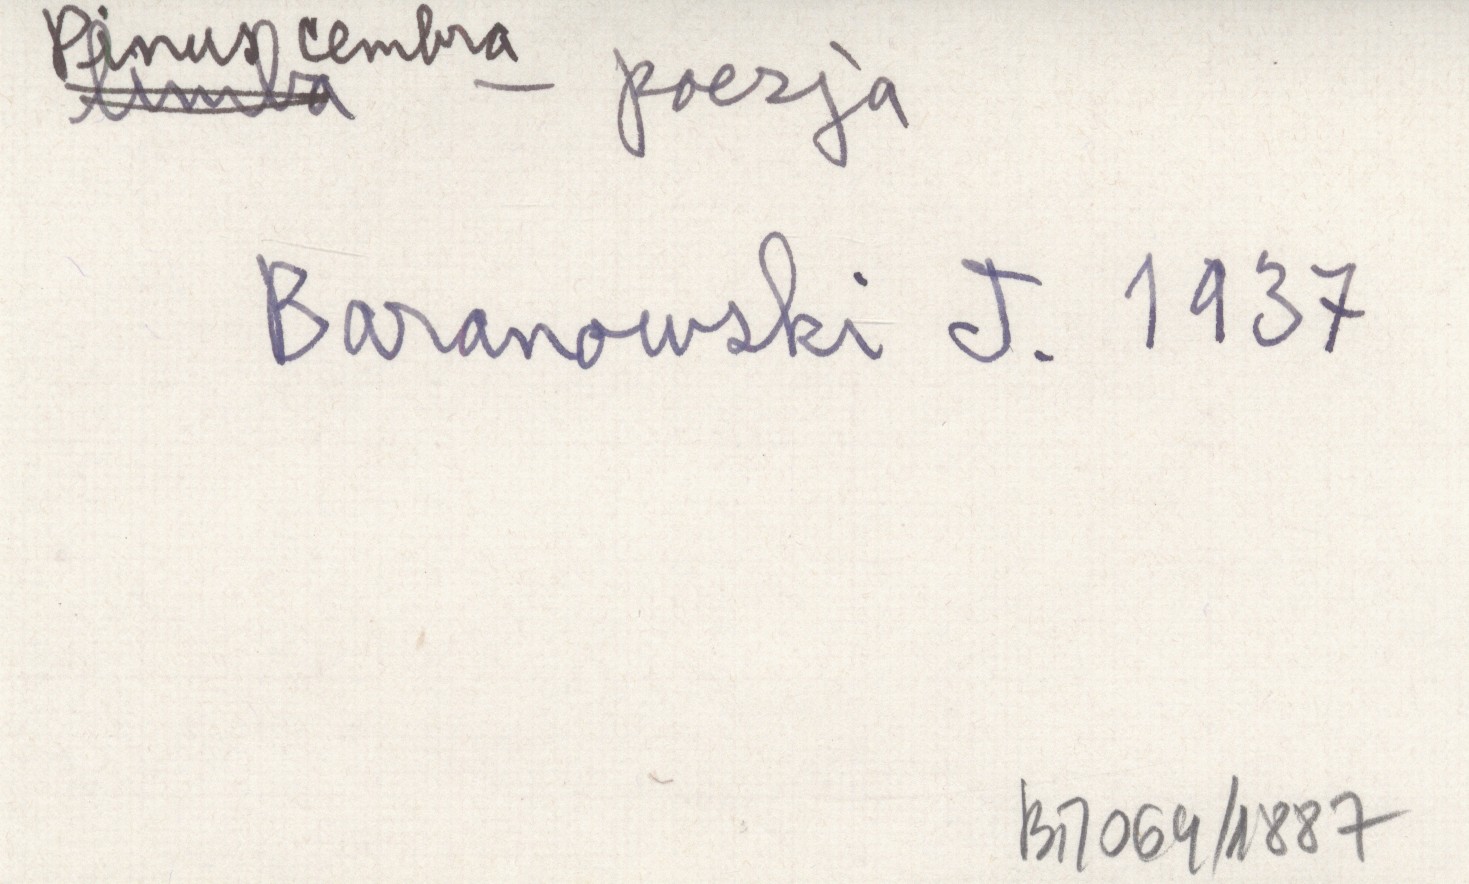 Pinus cembra
limba — poezja
Baranowski J. 1937
B17064/1887